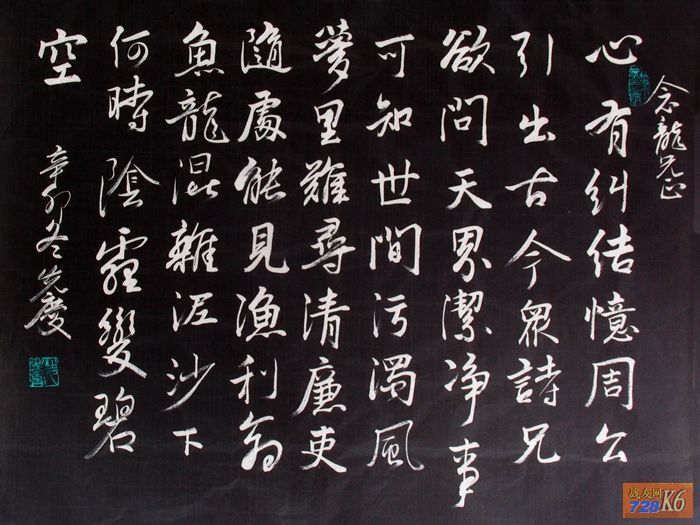 念龍兄正
心有糾结憶周公
引出古今衆詩兄
欲問天界潔净事
可知世間污濁風
夢里難尋清廉吏
隨處能見漁利翁
魚龍混雜泥沙下
何時陰霾變碧
空
辛卯冬先慶
战友网
728K6